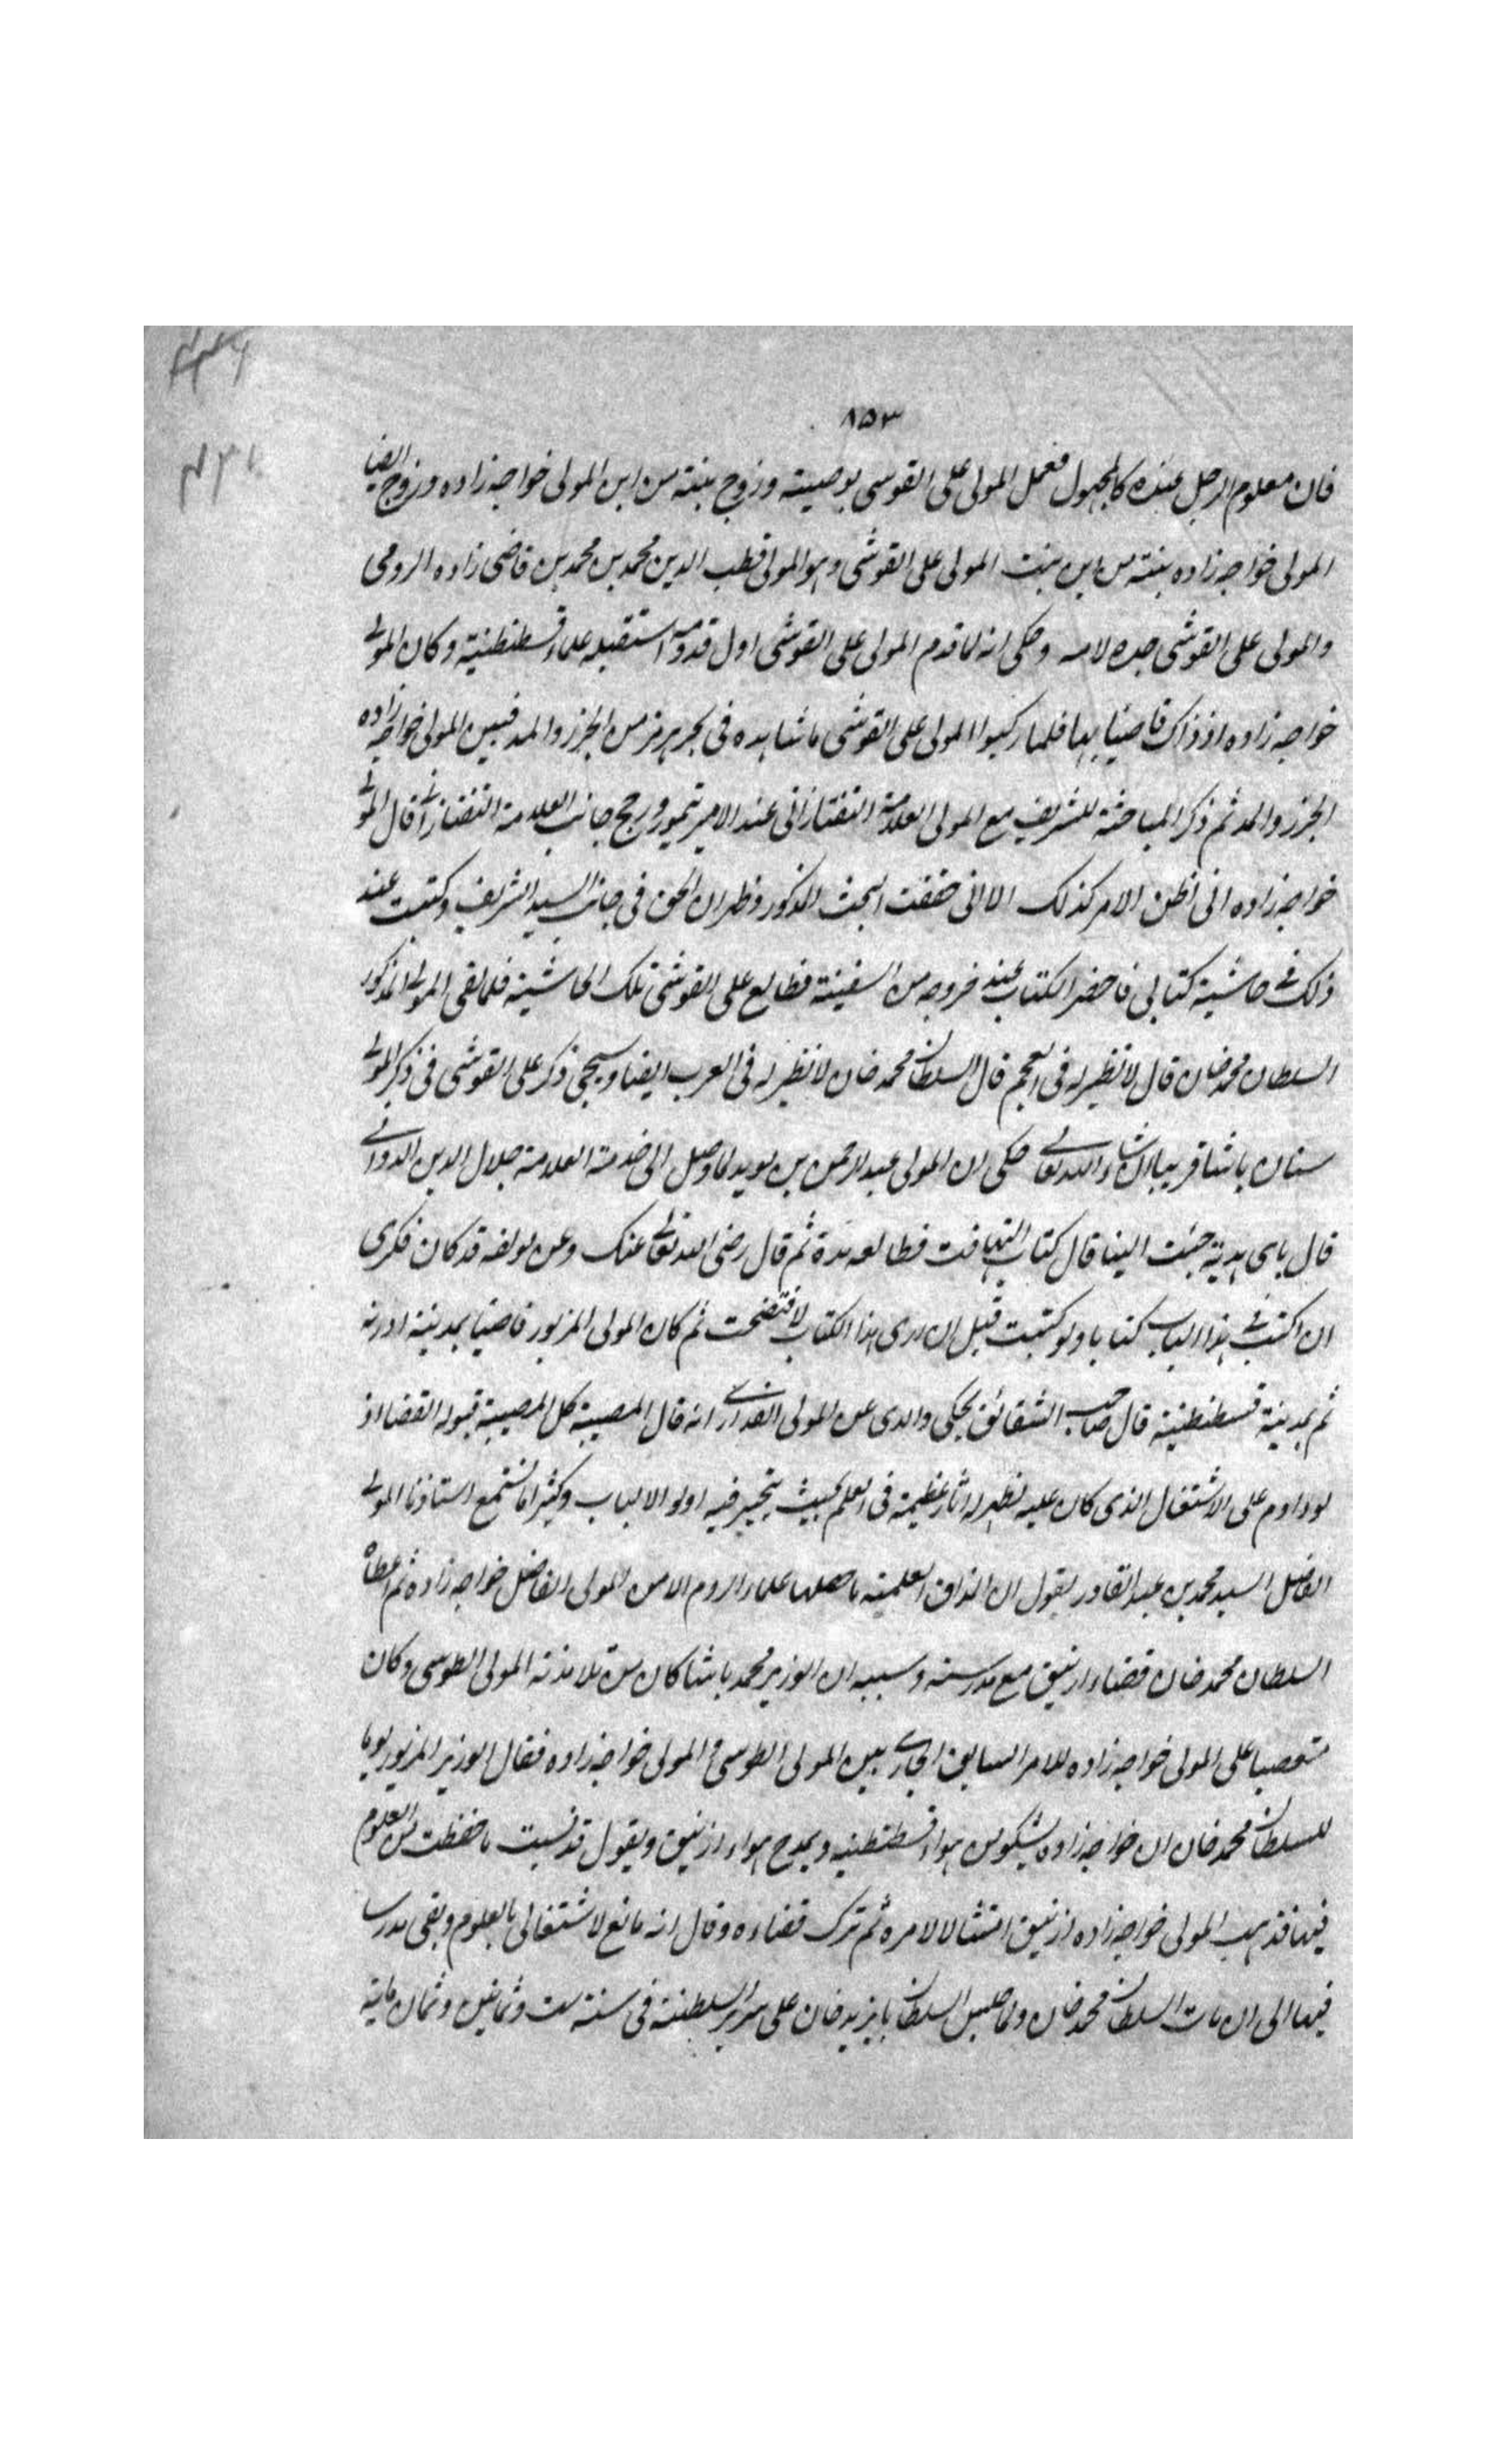 ٨٥٣
فان معلوم الرجل عنده كالمجهول فعمل المولى على القوسى بوصيته وزوج بنته من ابن المولى خواجه زاده وزوج ايضا
المولى خواجه زاده بنته من ابن بنت المولى على القوشى وهو المولى قطب الدين محمد بن محمد بن قاضى زاده الرومى
والمولى على القوشى جده لامه وحكى انه لما قدم المولى على القوشى اول قدومه استقبله علماء قسطنطنية وكان المولى
خواجه زاده اذ ذاك قاضيا بها فلما ركبوا المولى على القوشى ما شاهده فى بحر هرمز من الجزر والمد فبين المولى خواجه زاده
الجزر والمد ثم ذكر المباحثة للشريف مع المولى العلامة التفتازانى عند الامير تيمور ورجح جانب العلامة التفتازانى قال المولى
خواجه زاده انى اظن الامر كذلك الا انى حققت البحث المذكور وظهر ان الحق فى جانب السيد الشريف وكتبت عند
ذلك فى حاشية كتابى فاحضر الكتاب عند خروجه من السفينة فطالع على القوشى تلك الحاشية فلما لقى المولى المذكور
السلطان محمد خان قال لا نظير له فى العجم قال السلطان محمد خان لا نظير له فى العرب ايضا وسيجى ذكر على القوشى فى ذكر المولى
سنان باشا قريبا ان شاء الله تعالى حكى ان المولى عبد الرحمن بن مويد لما وصل الى خدمة العلامة جلال الدين الدوانى
قال باى هدية جئت الينا قال كتاب التهافت فطالعه مدة ثم قال رضى الله تعالى عنك وعن مولفه قد كان فكرى
ان اكتب فى هذا الباب كتابا ولو كتبت قبل ان ارى هذا الكتاب لافتضحت ثم كان المولى المزبور قاضيا بمدينة ادرنه
ثم بمدينة قسطنطنية قال صاحب الشقائق يحكى والدى عن المولى الفنارى انه قال المصيبة كل المصيبة قبوله القضا اذ
لو داوم على الاشتغال الذى كان عليه لظهر له اثار عظيمة فى العلم بحيث يتحير فيه اولو الالباب وكثيرا ما نستمع استاذنا المولى
الفاضل السيد محمد بن عبد القادر يقول ان المذاق العلمية ما حصلها علماء الروم الا من المولى الفاضل خواجه زاده ثم اعطاه
السلطان محمد خان قضاء ازنيق مع مدرسته وسببه ان الوزير محمد باشا كان من تلامذة المولى الطوسى وكان
متعصبا على المولى خواجه زاده للامر السابق الجارى بين المولى الطوسى والمولى خواجه زاده فقال الوزير المزبور يوما
للسلطان محمد خان ان خواجه زاده يشكو من هواء قسطنطنيه ويمدح هواء ازنيق ويقول قد نسيت ما حفظت من العلوم
فيها فذهب المولى خواجه زاده ازنيق امتثالا لامره ثم ترك قضاءه وقال انه مانع لاشتغالى بالعلوم وبقى مدرسا
فيها الى ان مات السلطان محمد خان ولما جلس السلطان بايزيد خان على سرير السلطنة فى سنة ست وثمانين وثمان ماية